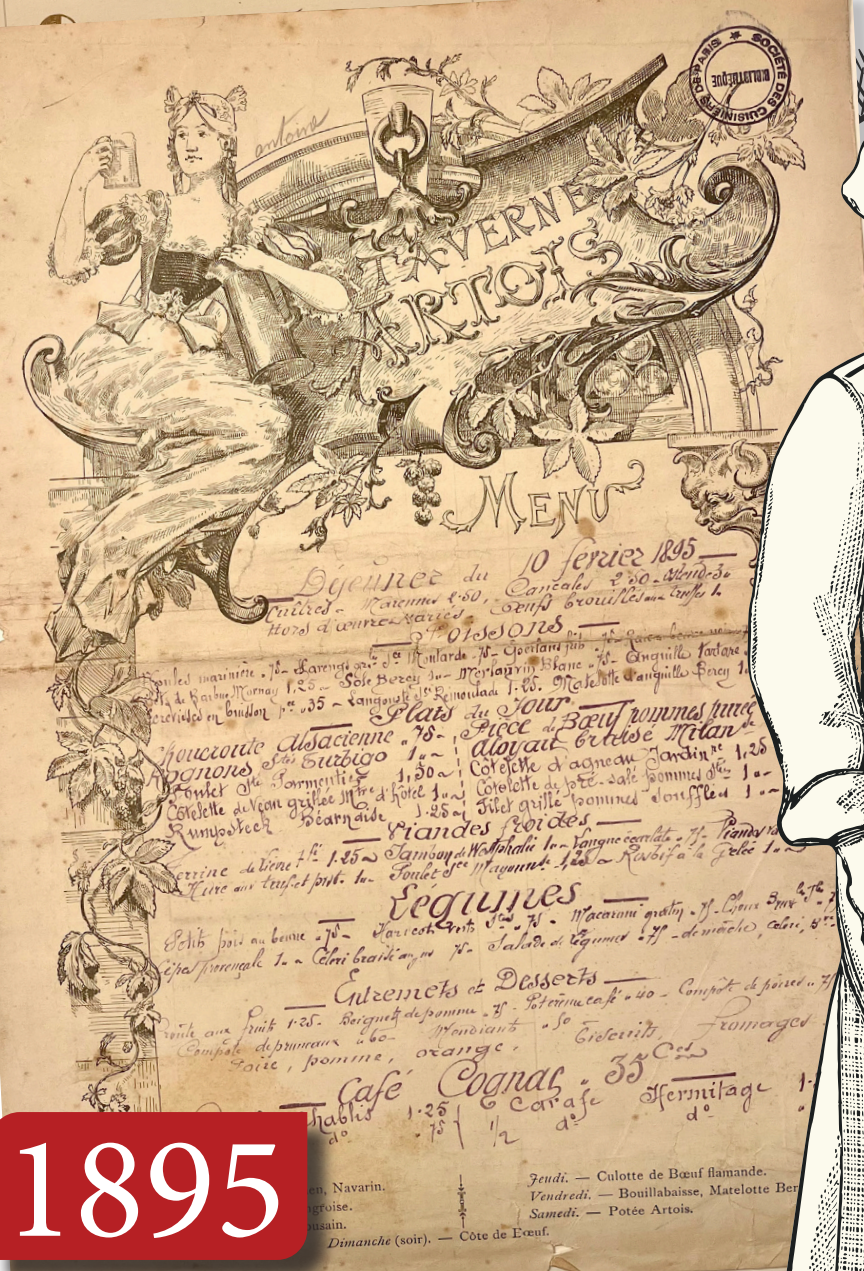 SOCIÉTÉ DES CUISINIERS DE PARIS
BIBLIOTHÈQUE
antoine
TAVERNE
ARTOIS
MENU
Déjeuner du 10 février 1895
Huîtres - Marennes 2.50, Cancales 2.50 -
Hors d'œuvre variés - Œufs brouillés aux truffes 1"
Poissons
Moules marinière "75 - Harengs Moutarde "75 -
Mornay 1,25 - Sole Bercy Blanc "75 - Anguille Tartare
Écrevisses en buisson "35 - Langouste Rémoulade 1.25. Matelotte d'anguille Bercy
Plats du Jour
Choucroute Alsacienne "75 Pièce de Bœuf pommes purée
Rognons Turbigo 1 " aloyau braisé Milan
Poulet Parmentier 1,50 Côtelette d'agneau Jardin 1,25
Côtelette de Veau grillée d'hôtel 1 " Côtelette de pré-salé pommes 1 "
Rumpsteck Béarnaise 1.25 Filet grillé pommes soufflées 1 "
Viandes froides
Terrine de Lièvre 1.25 Jambon de Westphalie 1 " Langue écarlate "75
Hure aux truf. et pist. 1 " Poulet Mayonn 1,25 Rosbif à la Gelée 1 "
Légumes
Petits pois au beurre "75 Haricots verts "75 - Macaroni gratin "75 - Choux
Cèpes provençale 1 " Céleri braisé au jus 75 Salade de légumes "75 - de mâche, céleri,
Entremets et Desserts
Croûte aux fruits 1.25 - Beignets de pomme "75 Pot crème café "40 - Compôte de poires "75
Compôte de pruneaux "60 Mendiants "50 Biscuits, Fromages
Poire, pomme, orange,
Café Cognac " 35 Ces
Chablis 1.25 Carafe Hermitage
do "75 1/2 do do
en, Navarin.
ngroise.
ousain.
Jeudi. — Culotte de Bœuf flamande.
Vendredi. — Bouillabaisse, Matelotte Ber
Samedi. — Potée Artois.
Dimanche (soir). — Côte de Bœuf.
1895